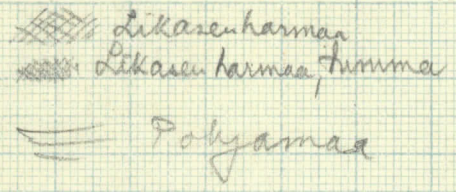 Likasenharmaa
Likasen harmaa, tumma
Pohjamaa